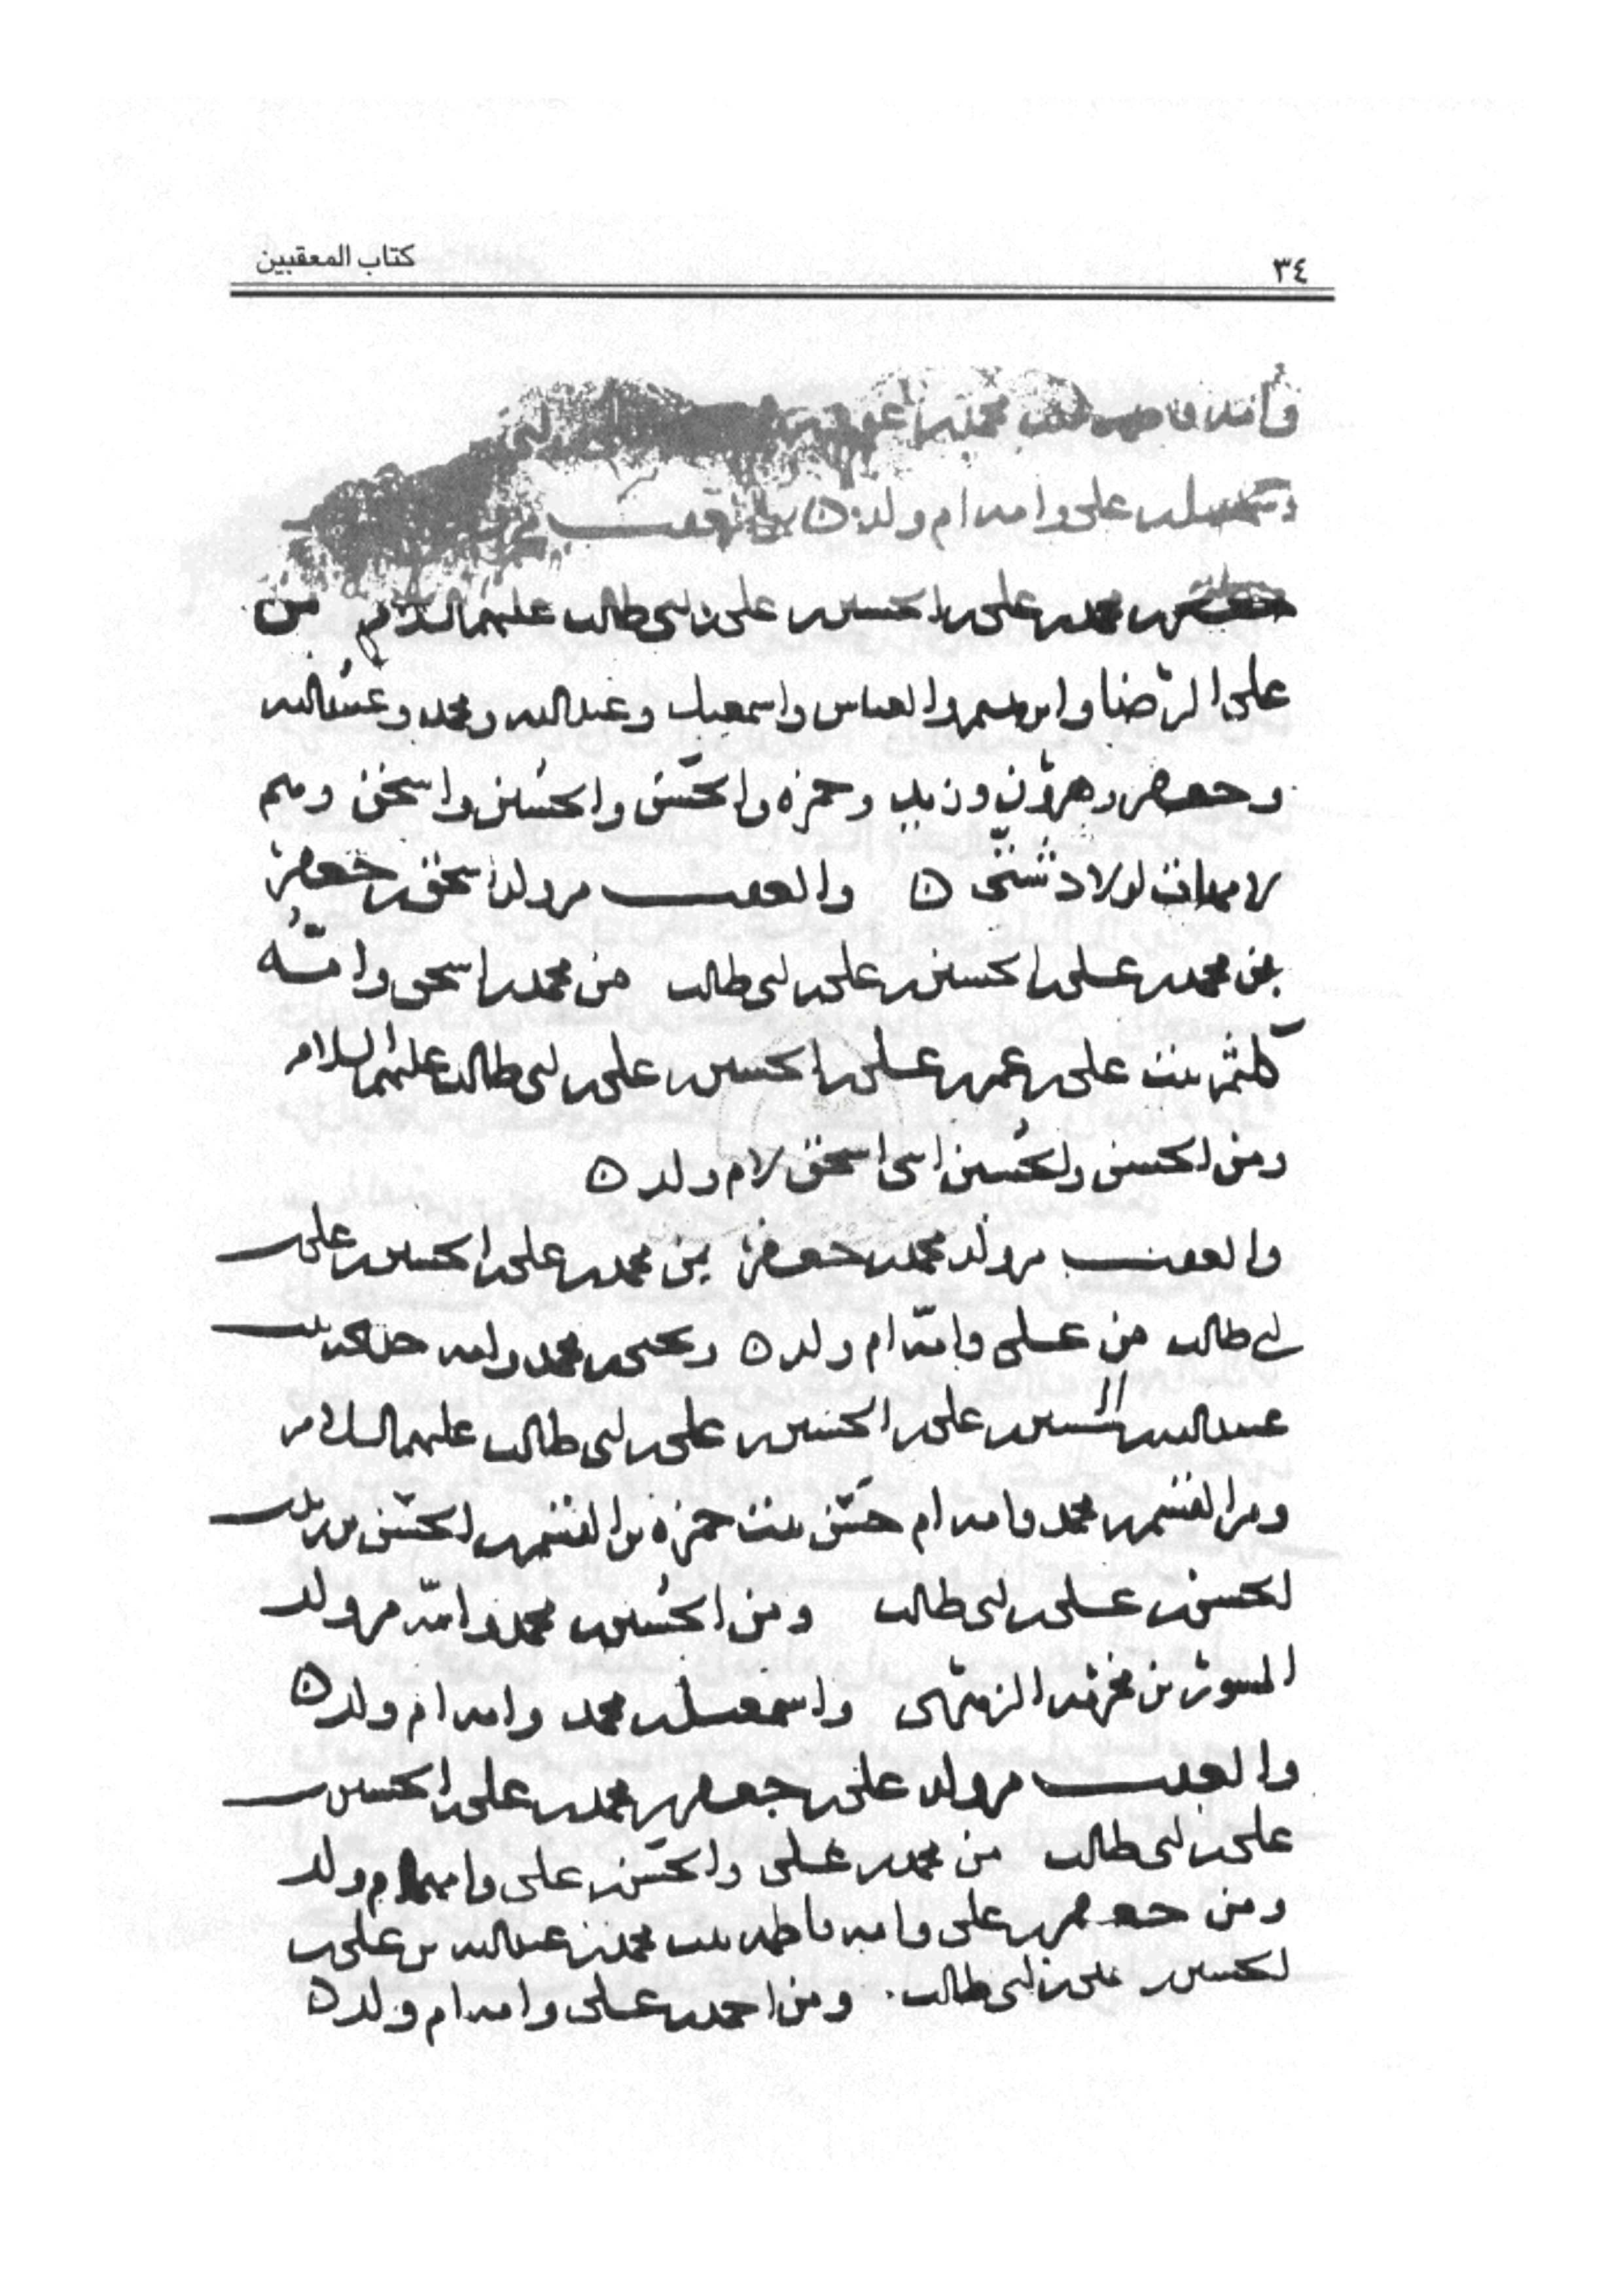 ٣٤
كتاب المعقبين
وامه فاطمة بنت محمد بن
بن علي وامه ام ولد ه والعقب من
جعفر بن محمد بن علي بن الحسين بن علي بن ابي طالب عليهم السلام من
علي الرضا وابرهيم والعباس واسمعيل وعبدالله ومحمد وعبيدالله
وجعفر وهرون وزيد وحمزه والحسن والحسين واسحق وهم
لامهات اولاد شتى ه والعقب من ولد اسحق بن جعفر
بن محمد بن علي بن الحسين بن علي بن ابي طالب من محمد بن اسحق وامه
كلثم بنت علي بن عمر بن علي بن الحسين بن علي بن ابي طالب عليهم السلام
ومن الحسن والحسين ابني اسحق لام ولد ه
والعقب من ولد محمد بن جعفر بن محمد بن علي بن الحسين بن علي بن
ابي طالب من علي وامه ام ولد ه ويحيى بن محمد وامه خديجه بنت
عبيدالله بن الحسين بن علي بن الحسين بن علي بن ابي طالب عليهم السلام
ومن القسم بن محمد وامه ام حسن بنت حمزه بن القسم بن الحسن بن زيد بن
الحسن بن علي بن ابي طالب ومن الحسين بن محمد وامه من ولد
المسور بن مخرمه الزهري واسمعيل بن محمد وامه ام ولد ه
والعقب من ولد علي بن جعفر بن محمد بن علي بن الحسين بن
علي بن ابي طالب من محمد بن علي والحسن بن علي وامهما ام ولد
ومن جعفر بن علي وامه فاطمه بنت محمد بن عبدالله بن علي بن
الحسين بن علي بن ابي طالب. ومن احمد بن علي وامه ام ولد ه